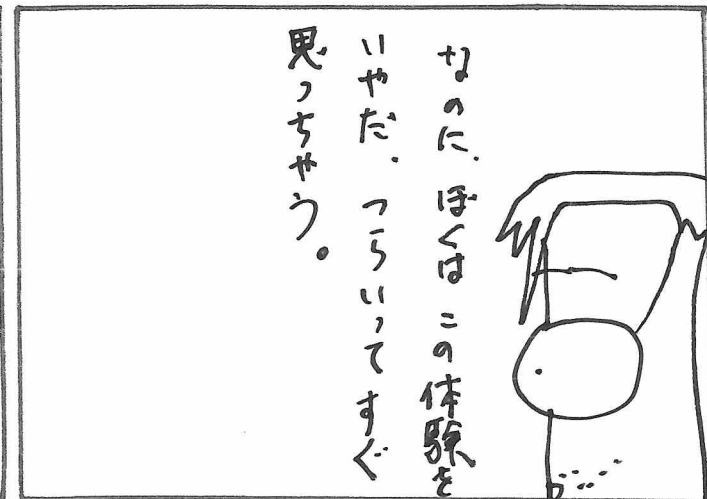 なのに、ぼくは この体験を
いやだ、つらいってすぐ
思っちゃう。